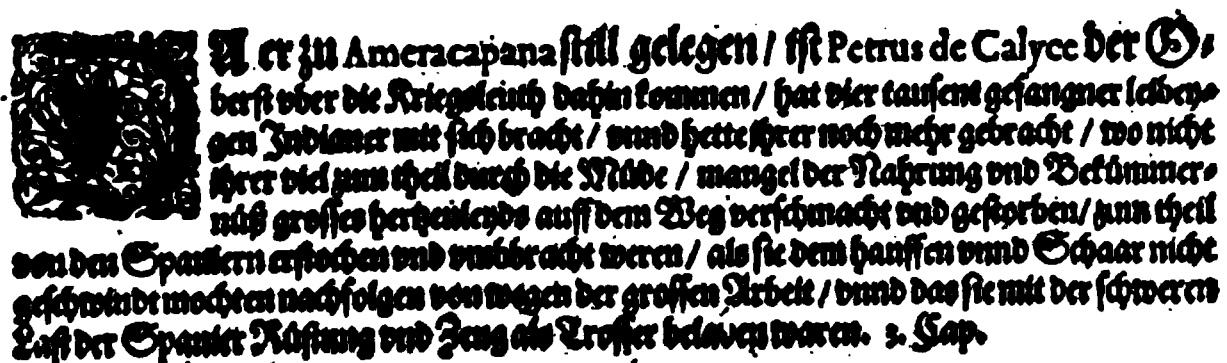 DA er zu Ameracapana still gelegen / ist Petrus de Calyce der O-
berst vber die Kriegsleuth dahin kommen / hat vier tausent gefangner leibey-
gen Indianer mit sich bracht / vnnd hette jhrer noch mehr gebracht / wo nicht
jhrer viel zum theil durch die Müde / mangel der Nahrung vnd Bekümmer-
nüß grosses hertzenleyds auff dem Weg verschmacht vnd gestorben / zum theil
von den Spaniern erstochen vnd vmbbracht weren / als sie dem hauffen vnnd Schaar nicht
geschwindt mochten nachfolgen von wegen der grossen Arbeit / vnnd das sie mit der schweren
Last der Spanier Rüstung vnd Zeug als Trosser beladen waren. 2. Cap.